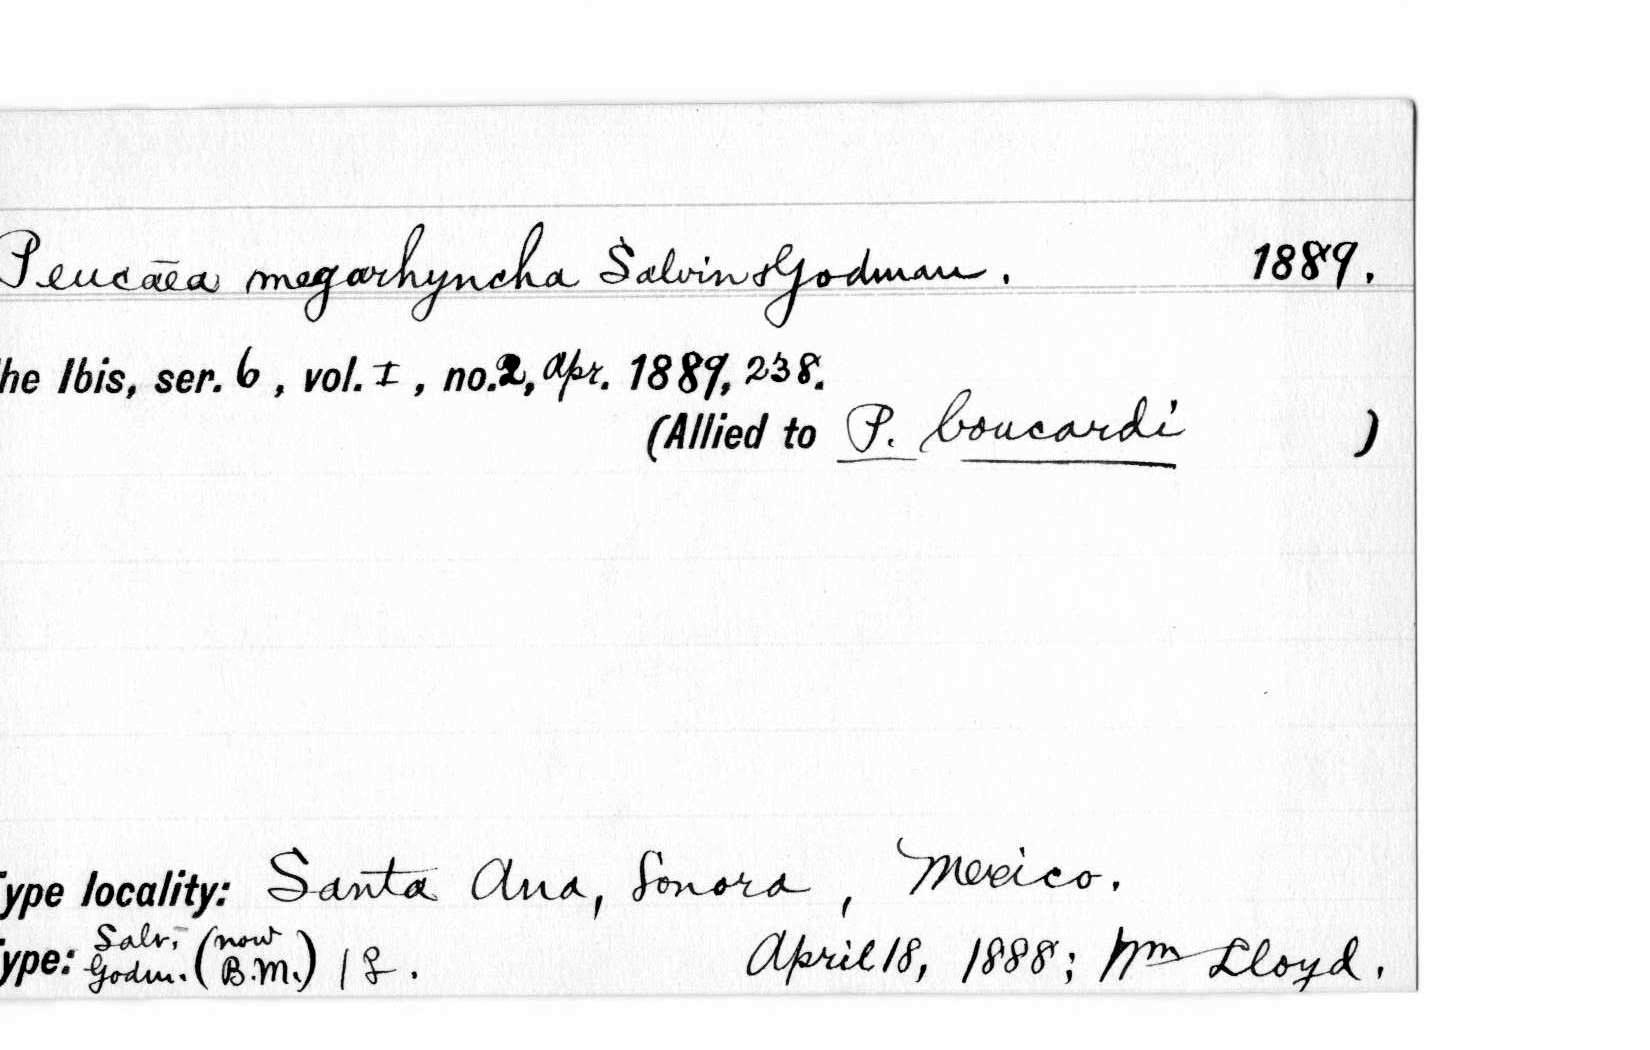 Peucaea megarhyncha Salvin & Godman. 1889.
he Ibis, ser. 6, vol. I, no. 2, Apr. 1889, 238.
(Allied to P. boucardi )
ype locality: Santa Ana, Sonora, Mexico.
ype: Salv. Godm. (now B.M.) 1 April 18, 1888; Wm Lloyd.